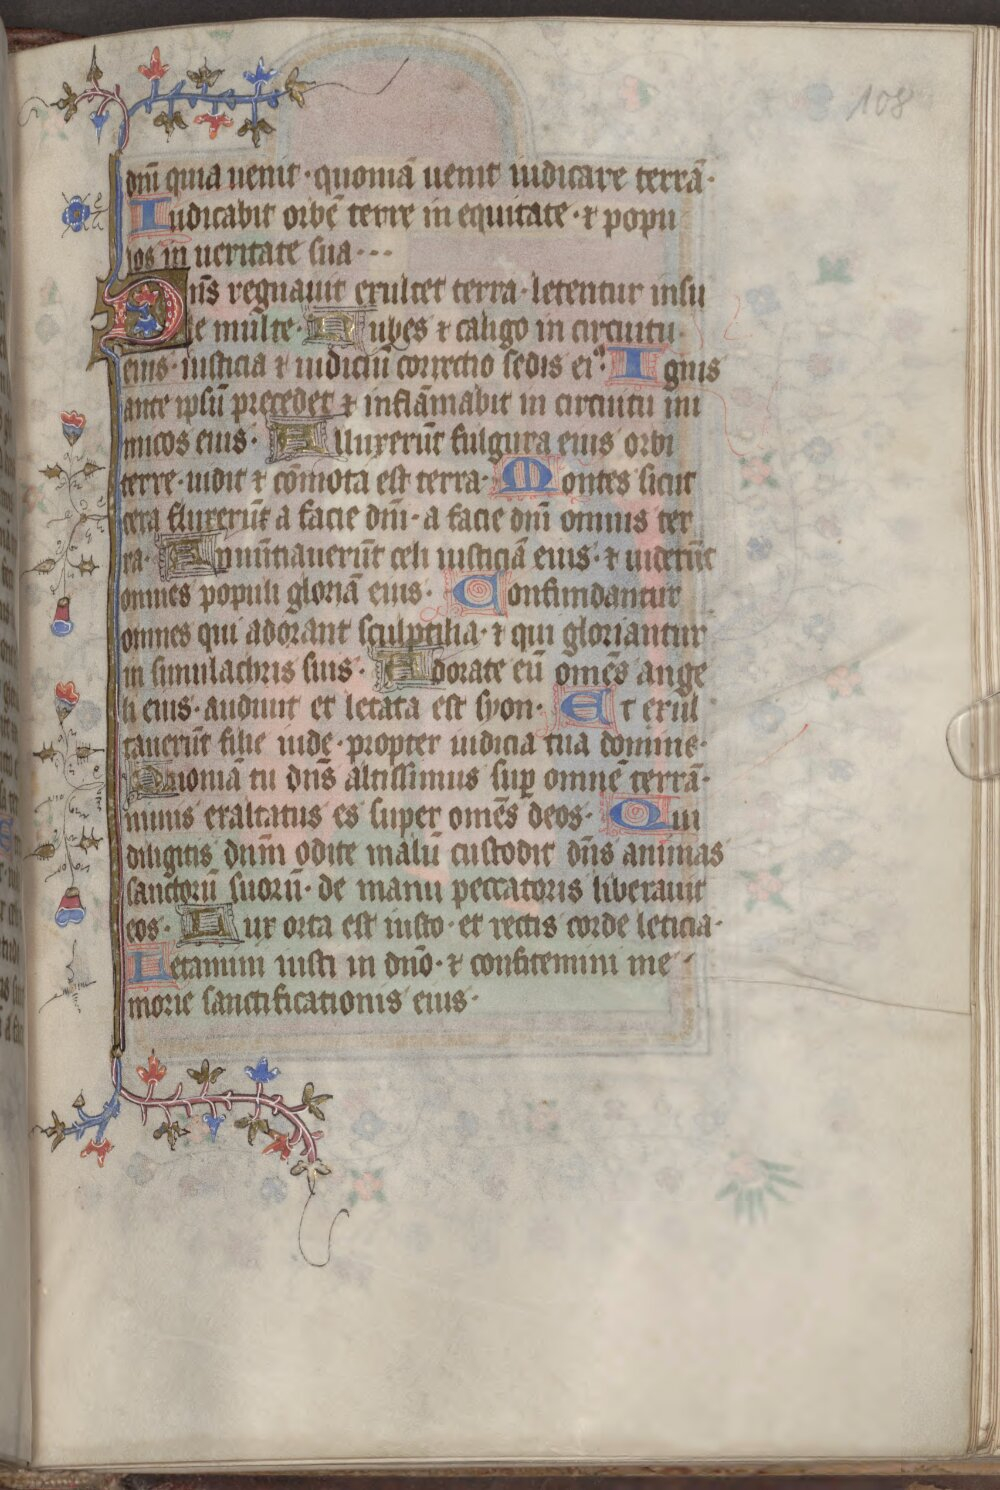 108
dnı̄ quia uenit · quoniā uenit iudicare terrā ·
Iudicabit orbē terre in equitate · ⁊ popu
los in ueritate sua · · ·
Dn̄s regnauit exultet terra · letentur insu
le multe · Nubes ⁊ caligo in circuitu
eius · iusticia ⁊ iudiciū correctio sedis ei⁹ · Ignis
ante ipsū precedet ⁊ inflāmabit in circuitu ini
micos eius · Alluxerūt fulgura eius orbi
terre · uidit ⁊ cōmota est terra · Montes sicut
cera fluxerūt a facie dnı̄ · a facie dnı̄ omnis ter
ra · Annūtiauerūt celi iusticiā eius · ⁊ uiderūt
omnes populi gloriā eius · Confundantur
omnes qui adorant sculptilia · ⁊ qui gloriantur
in simulachris suis · Adorate eū omēs ange
li eius · audiuit et letata est syon · Et exul
tauerūt filie iude · propter iudicia tua domine ·
Quoniā tu dn̄s altissimus suꝑ omnē terrā ·
nimis exaltatus es super omēs deos · Qui
diligitis dnm̄ odite malū custodit dn̄s animas
sanctorū suorū · de manu peccatoris liberauit
eos · Lux orta est iusto · et rectis corde leticia ·
Letamini iusti in dn̄o · ⁊ confitemini me
morie sanctificationis eius ·